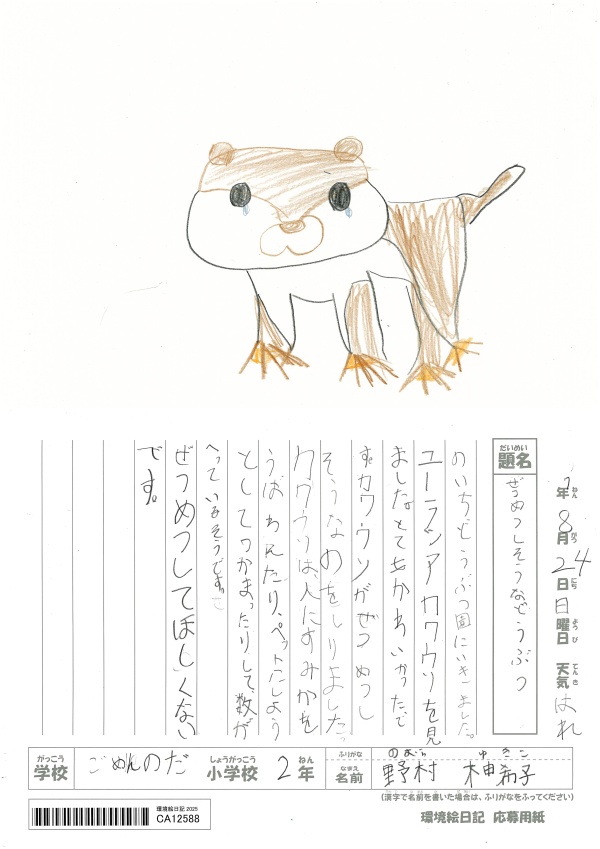 7年8月24日日曜日 天気 はれ
ねん がつ にち ようび てんき
だいめい
題名 ぜつめつしそうなどうぶつ
のいちどうぶつ園にいきました。
ユーラシアカワウソを見
ましたとてもかわいかったで
すカワウソがぜつめつし
そうなのをしりました。
カワウソは、人にすみかを
うばわれたり、ペットにしよう
としてつかまったりして、数が
へっているそうです。
ぜつめつしてほしくない
です。
がっこう しょうがっこう ねん ふりがな のむら ゆきこ
学校 ごめんのだ 小学校 2年 なまえ 名前 野村 柚希子
(漢字で名前を書いた場合は、ふりがなをふってください)
環境絵日記 応募用紙
環境絵日記 2025
CA12588